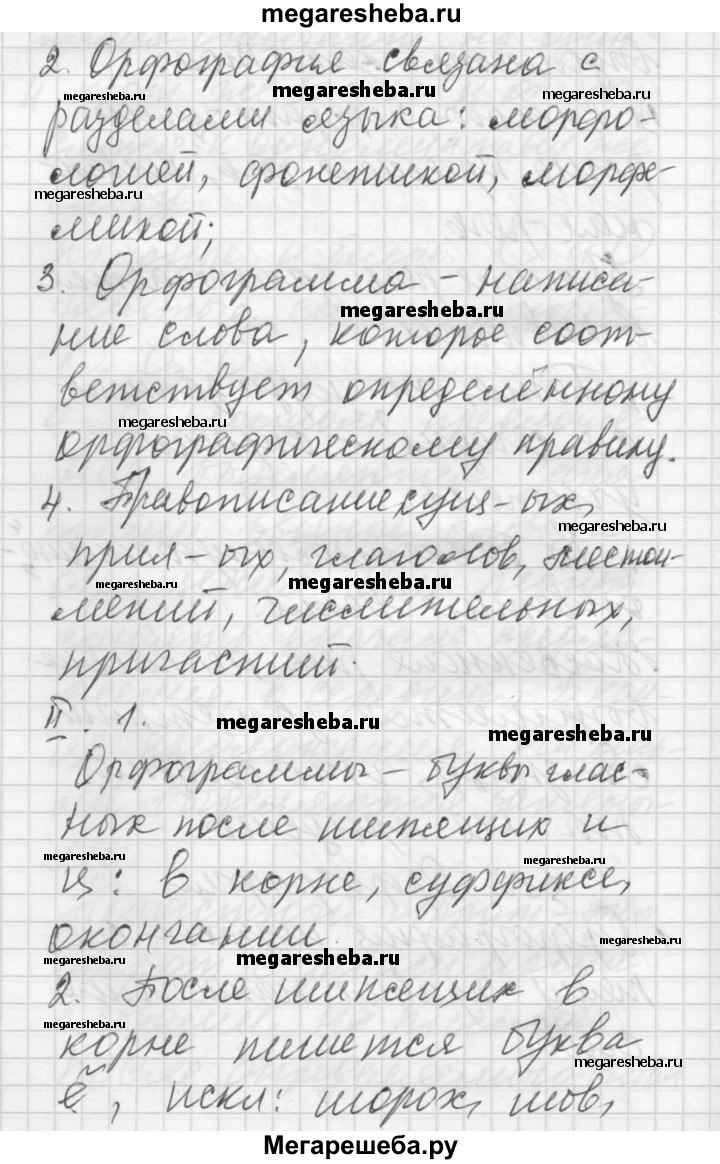 megaresheba.ru
2. Орфография связана с
megaresheba.ru megaresheba.ru megaresheba.ru
разделами языка: морфо-
логией, фонетикой, морфе-
megaresheba.ru megaresheba.ru
микой;
3. Орфограмма – написа-
megaresheba.ru
ние слова, которое соот-
ветствует определённому
megaresheba.ru
орфографическому правилу.
4. Правописание сущ-ых,
megaresheba.ru
прил-ых, глаголов, местои-
megaresheba.ru megaresheba.ru
мений, числительных,
причастий.
II. 1. megaresheba.ru megaresheba.ru
Орфограммы – буквы глас-
ных после шипящих и
megaresheba.ru megaresheba.ru
ц: в корне, суффиксе,
окончании.
megaresheba.ru megaresheba.ru megaresheba.ru
2. После шипящих в
megaresheba.ru
корне пишется буква
megaresheba.ru
ё, искл: шорох, шов,
Мегарешеба.ру